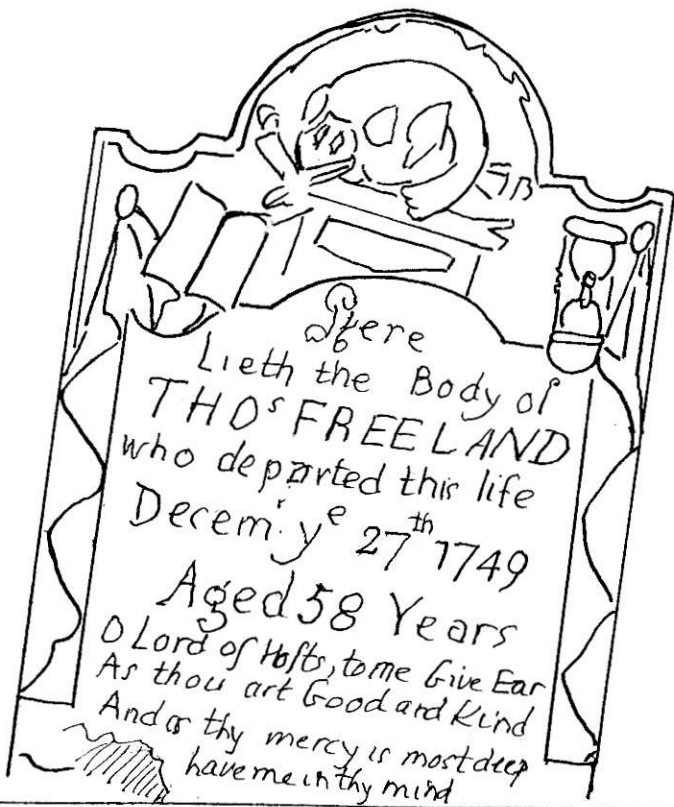 Here
Lieth the Body of
THOˢ FREELAND
who departed this life
Decem: yᵉ 27ᵗʰ 1749
Aged 58 Years
O Lord of Hosts, to me Give Ear
As thou art Good and Kind
And as thy mercy is most deep
have me in thy mind